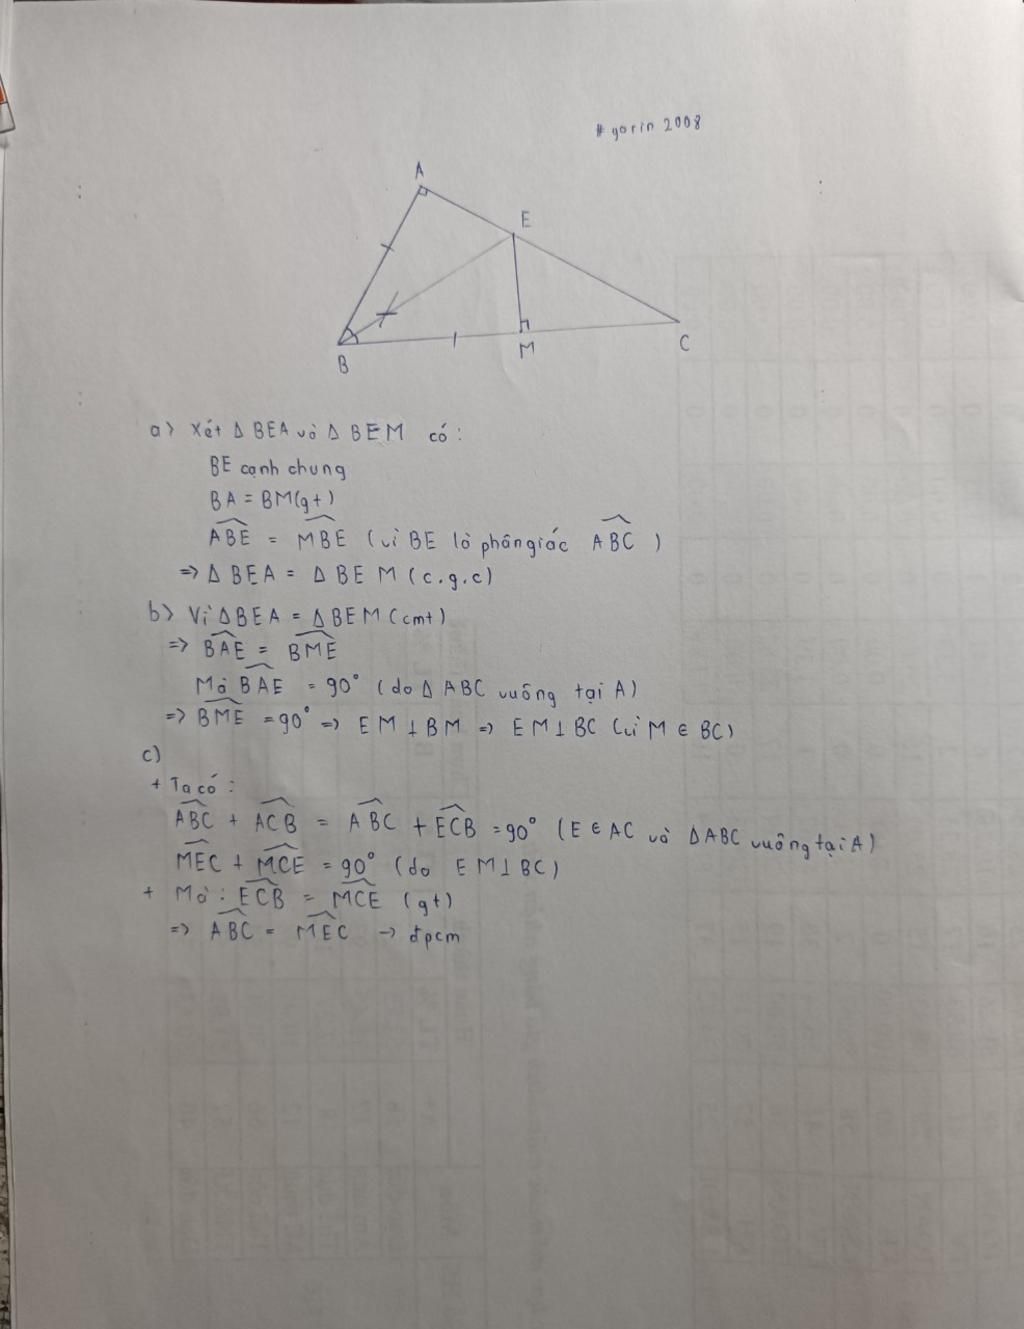 # yorin 2008
A
E
B
M
C
a) Xét Δ BEA và Δ BEM có :
BE cạnh chung
BA = BM (gt)
$\widehat{ABE}$ = $\widehat{MBE}$ (vì BE là phân giác $\widehat{ABC}$ )
=> Δ BEA = Δ BEM (c.g.c)
b) Vì ΔBEA = ΔBEM (cmt)
=> $\widehat{BAE}$ = $\widehat{BME}$
Mà $\widehat{BAE}$ = 90° (do Δ ABC vuông tại A)
=> $\widehat{BME}$ = 90° => EM ⊥ BM => EM ⊥ BC (vì M ∈ BC)
c)
+ Ta có :
$\widehat{ABC}$ + $\widehat{ACB}$ = $\widehat{ABC}$ + $\widehat{ECB}$ = 90° (E ∈ AC và ΔABC vuông tại A)
$\widehat{MEC}$ + $\widehat{MCE}$ = 90° (do EM ⊥ BC)
+ Mà : $\widehat{ECB}$ = $\widehat{MCE}$ (gt)
=> $\widehat{ABC}$ = $\widehat{MEC}$ → đpcm